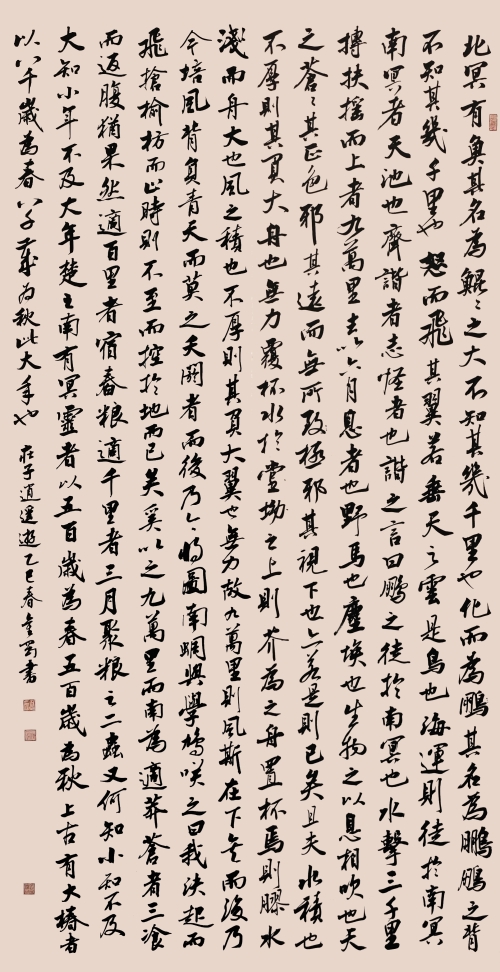 北冥有魚其名為鯤〻之大不知其幾千里也化而為鵬其名為鵬鵬之背
不知其幾千里也怒而飛其翼若垂天之雲是鳥也海運則徙於南冥
南冥者天池也齊諧者志怪者也諧之言曰鵬之徙於南冥也水擊三千里
摶扶搖而上者九萬里去以六月息者也野馬也塵埃也生物之以息相吹也天
之蒼〻其正色邪其遠而無所致極邪其視下也亦若是則已矣且夫水積也
不厚則其負大舟也無力覆杯水於堂坳之上則芥為之舟置杯焉則膠水
淺而舟大也風之積也不厚則其負大翼也無力故九萬里則風斯在下矣而後乃
今培風背負青天而莫之夭閼者而後乃今將圖南蜩與學鳩咲之曰我決起而
飛搶榆枋而止時則不至而控於地而已矣奚以之九萬里而南為適莽蒼者三飡
而返腹猶果然適百里者宿舂粮適千里者三月聚粮之二蟲又何知小知不及
大知小年不及大年楚之南有冥靈者以五百歲為春五百歲為秋上古有大椿者
以八千歲為春八千歲為秋此大年也 莊子逍遥遊乙巳春書